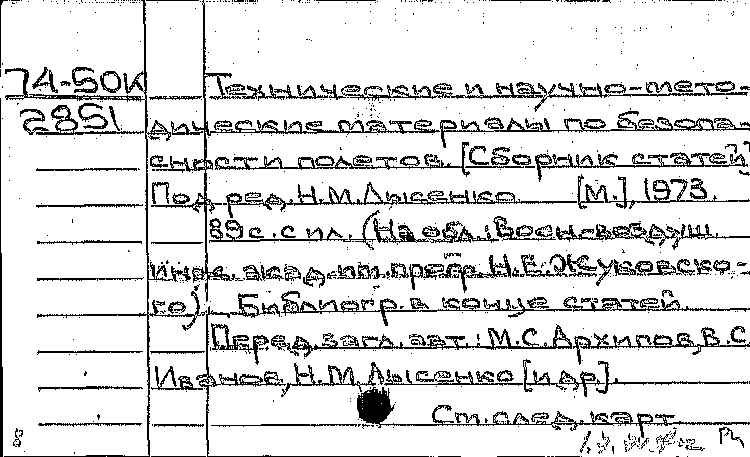 74-50К Технические и научно-мето-
2851 дические материалы по безопа-
сности полетов. [Сборник статей]
Под ред. Н.М. Лысенко [М.], 1973.
89 с. с ил. (На обл.: Воен-воздуш.
инж. акад. им. проф. Н.Е. Жуковско-
го). Библиогр. в конце статей
Перед загл. авт.: М.С. Архипов, В.С.
Иванов, Н.М. Лысенко [и др].
См. след. карт
8